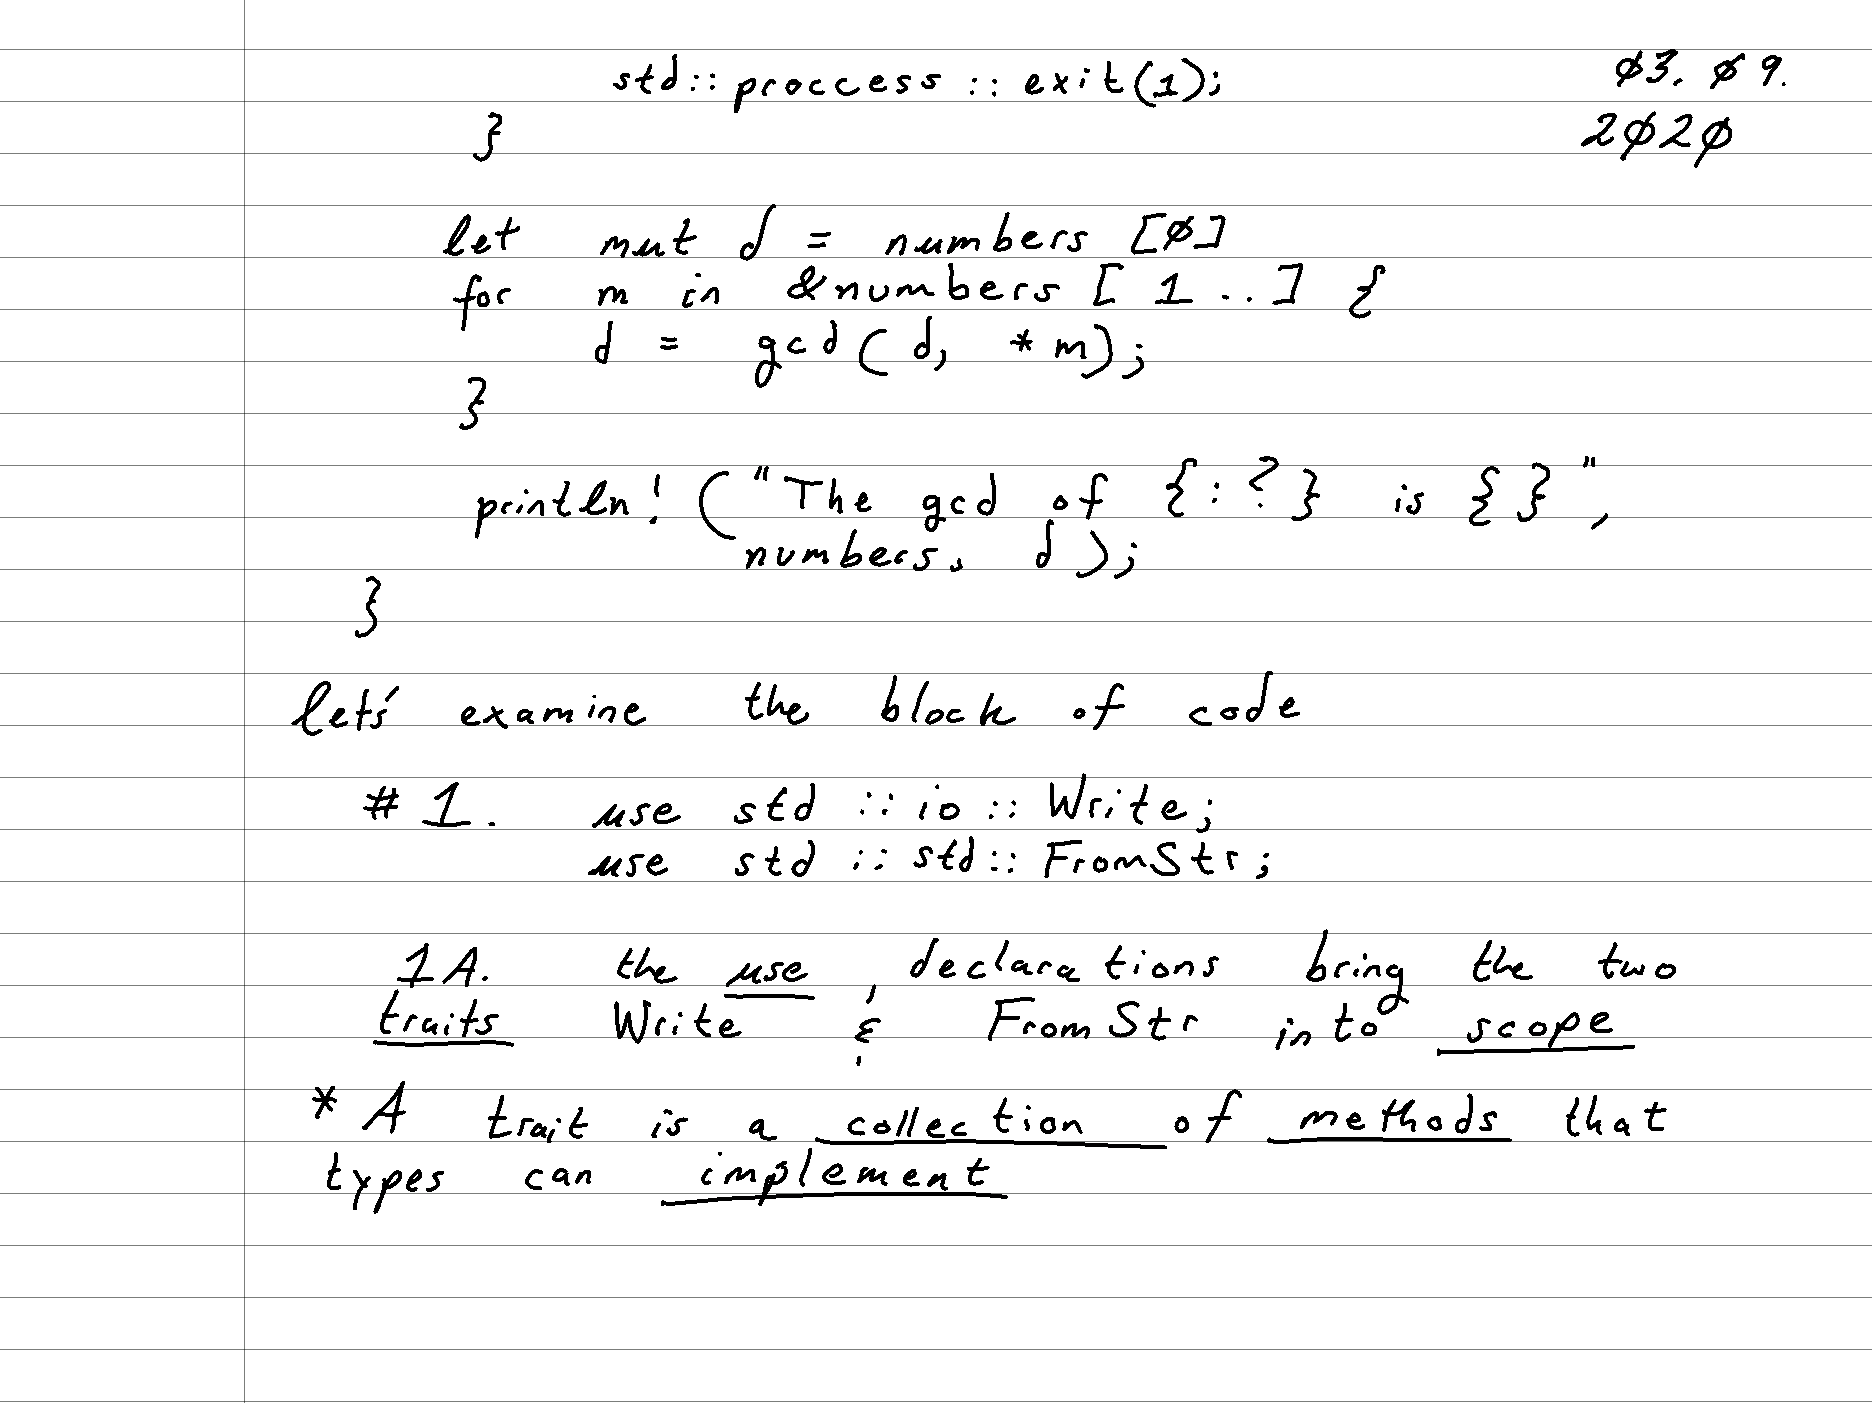 std::proccess::exit(1);
Ø3. Ø9.
}
2Ø2Ø
let mut d = numbers [Ø]
for m in &numbers [1..] {
d = gcd(d, *m);
}
println! ("The gcd of {:?} is {}",
numbers, d);
}
let's examine the block of code
#1. use std::io::Write;
use std::std::FromStr;
1A. the use declarations bring the two
traits Write & FromStr into scope
* A trait is a collection of methods that
types can implement